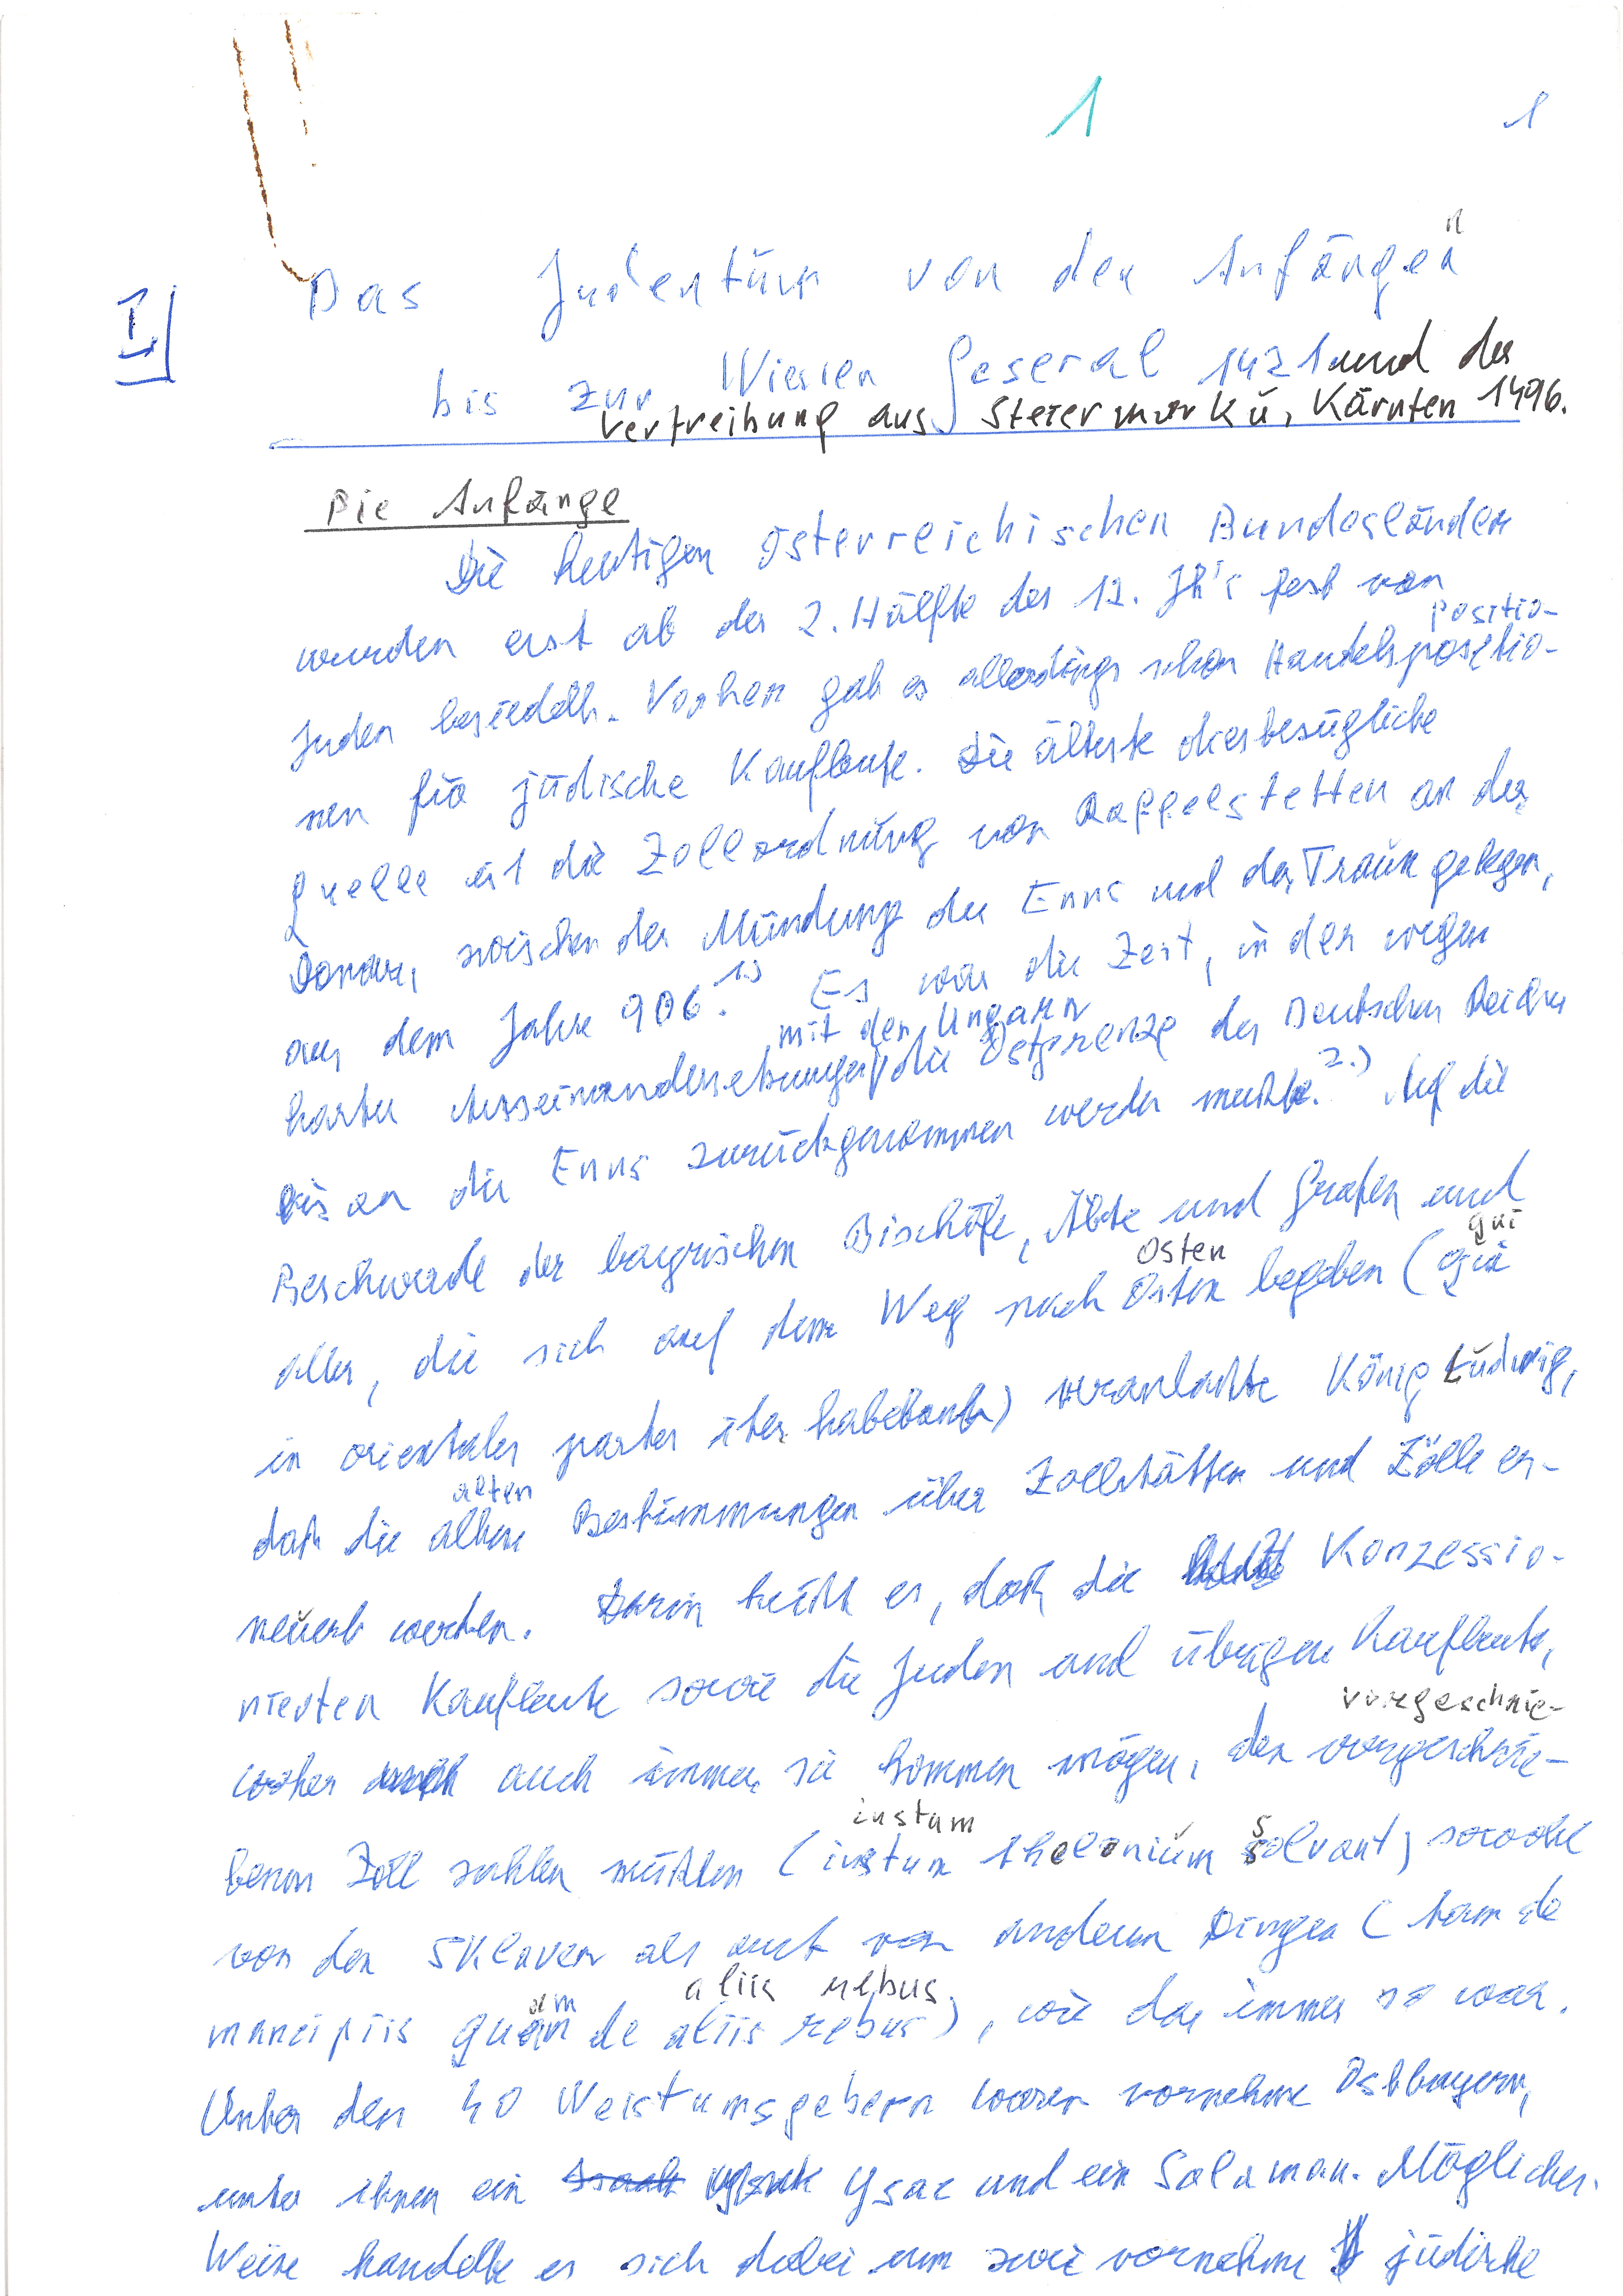 1
1
I
Das Judentum von den Anfängen
bis zur Wiener Geseral 1421 und der
Vertreibung aus Steiermark u. Kärnten 1496.
Die Anfänge
Die heutigen österreichischen Bundesländer
wurden erst ab der 2. Hälfte des 12. Jh's fest von
positio-
Juden besiedelt. Vorher gab es allerdings schon Handelspositio-
nen für jüdische Kaufleute. Die älteste diesbezügliche
Quelle ist die Zollordnung von Raffelstetten an der
Donau, zwischen der Mündung der Enns und der Traun gelegen,
aus dem Jahre 906.1) Es war die Zeit, in der wegen
mit den Ungarn
harter Auseinandersetzungen die Ostgrenze des Deutschen Reiches
bis an die Enns zurückgenommen werden mußte.2.) Auf die
Beschwerde der bayrischen Bischöfe, Äbte und Grafen und
Osten qui
aller, die sich auf dem Weg nach Osten begeben (qui
in orientales partes iter habebant) veranlaßte König Ludwig,
alten
daß die alten Bestimmungen über Zollstätten und Zölle er-
neuert werden. Darin heißt es, daß die Konzessio-
nierten Kaufleute sowie die Juden und übrigen Kaufleute,
vorgeschrie-
woher auch immer sie kommen mögen, den vorgeschrie-
instum s
benen Zoll zahlen müßten (instum theloneum solvant) sowohl
von den Sklaven als auch von anderen Dingen (tam de
am aliis rebus
mancipiis quam de aliis rebus), wie das immer so war.
Unter den 40 Weistumsgebern waren vornehme Ostbayern,
unter ihnen ein Ysac und ein Salaman. Möglicher-
Weise handelte es sich dabei um zwei vornehme jüdische